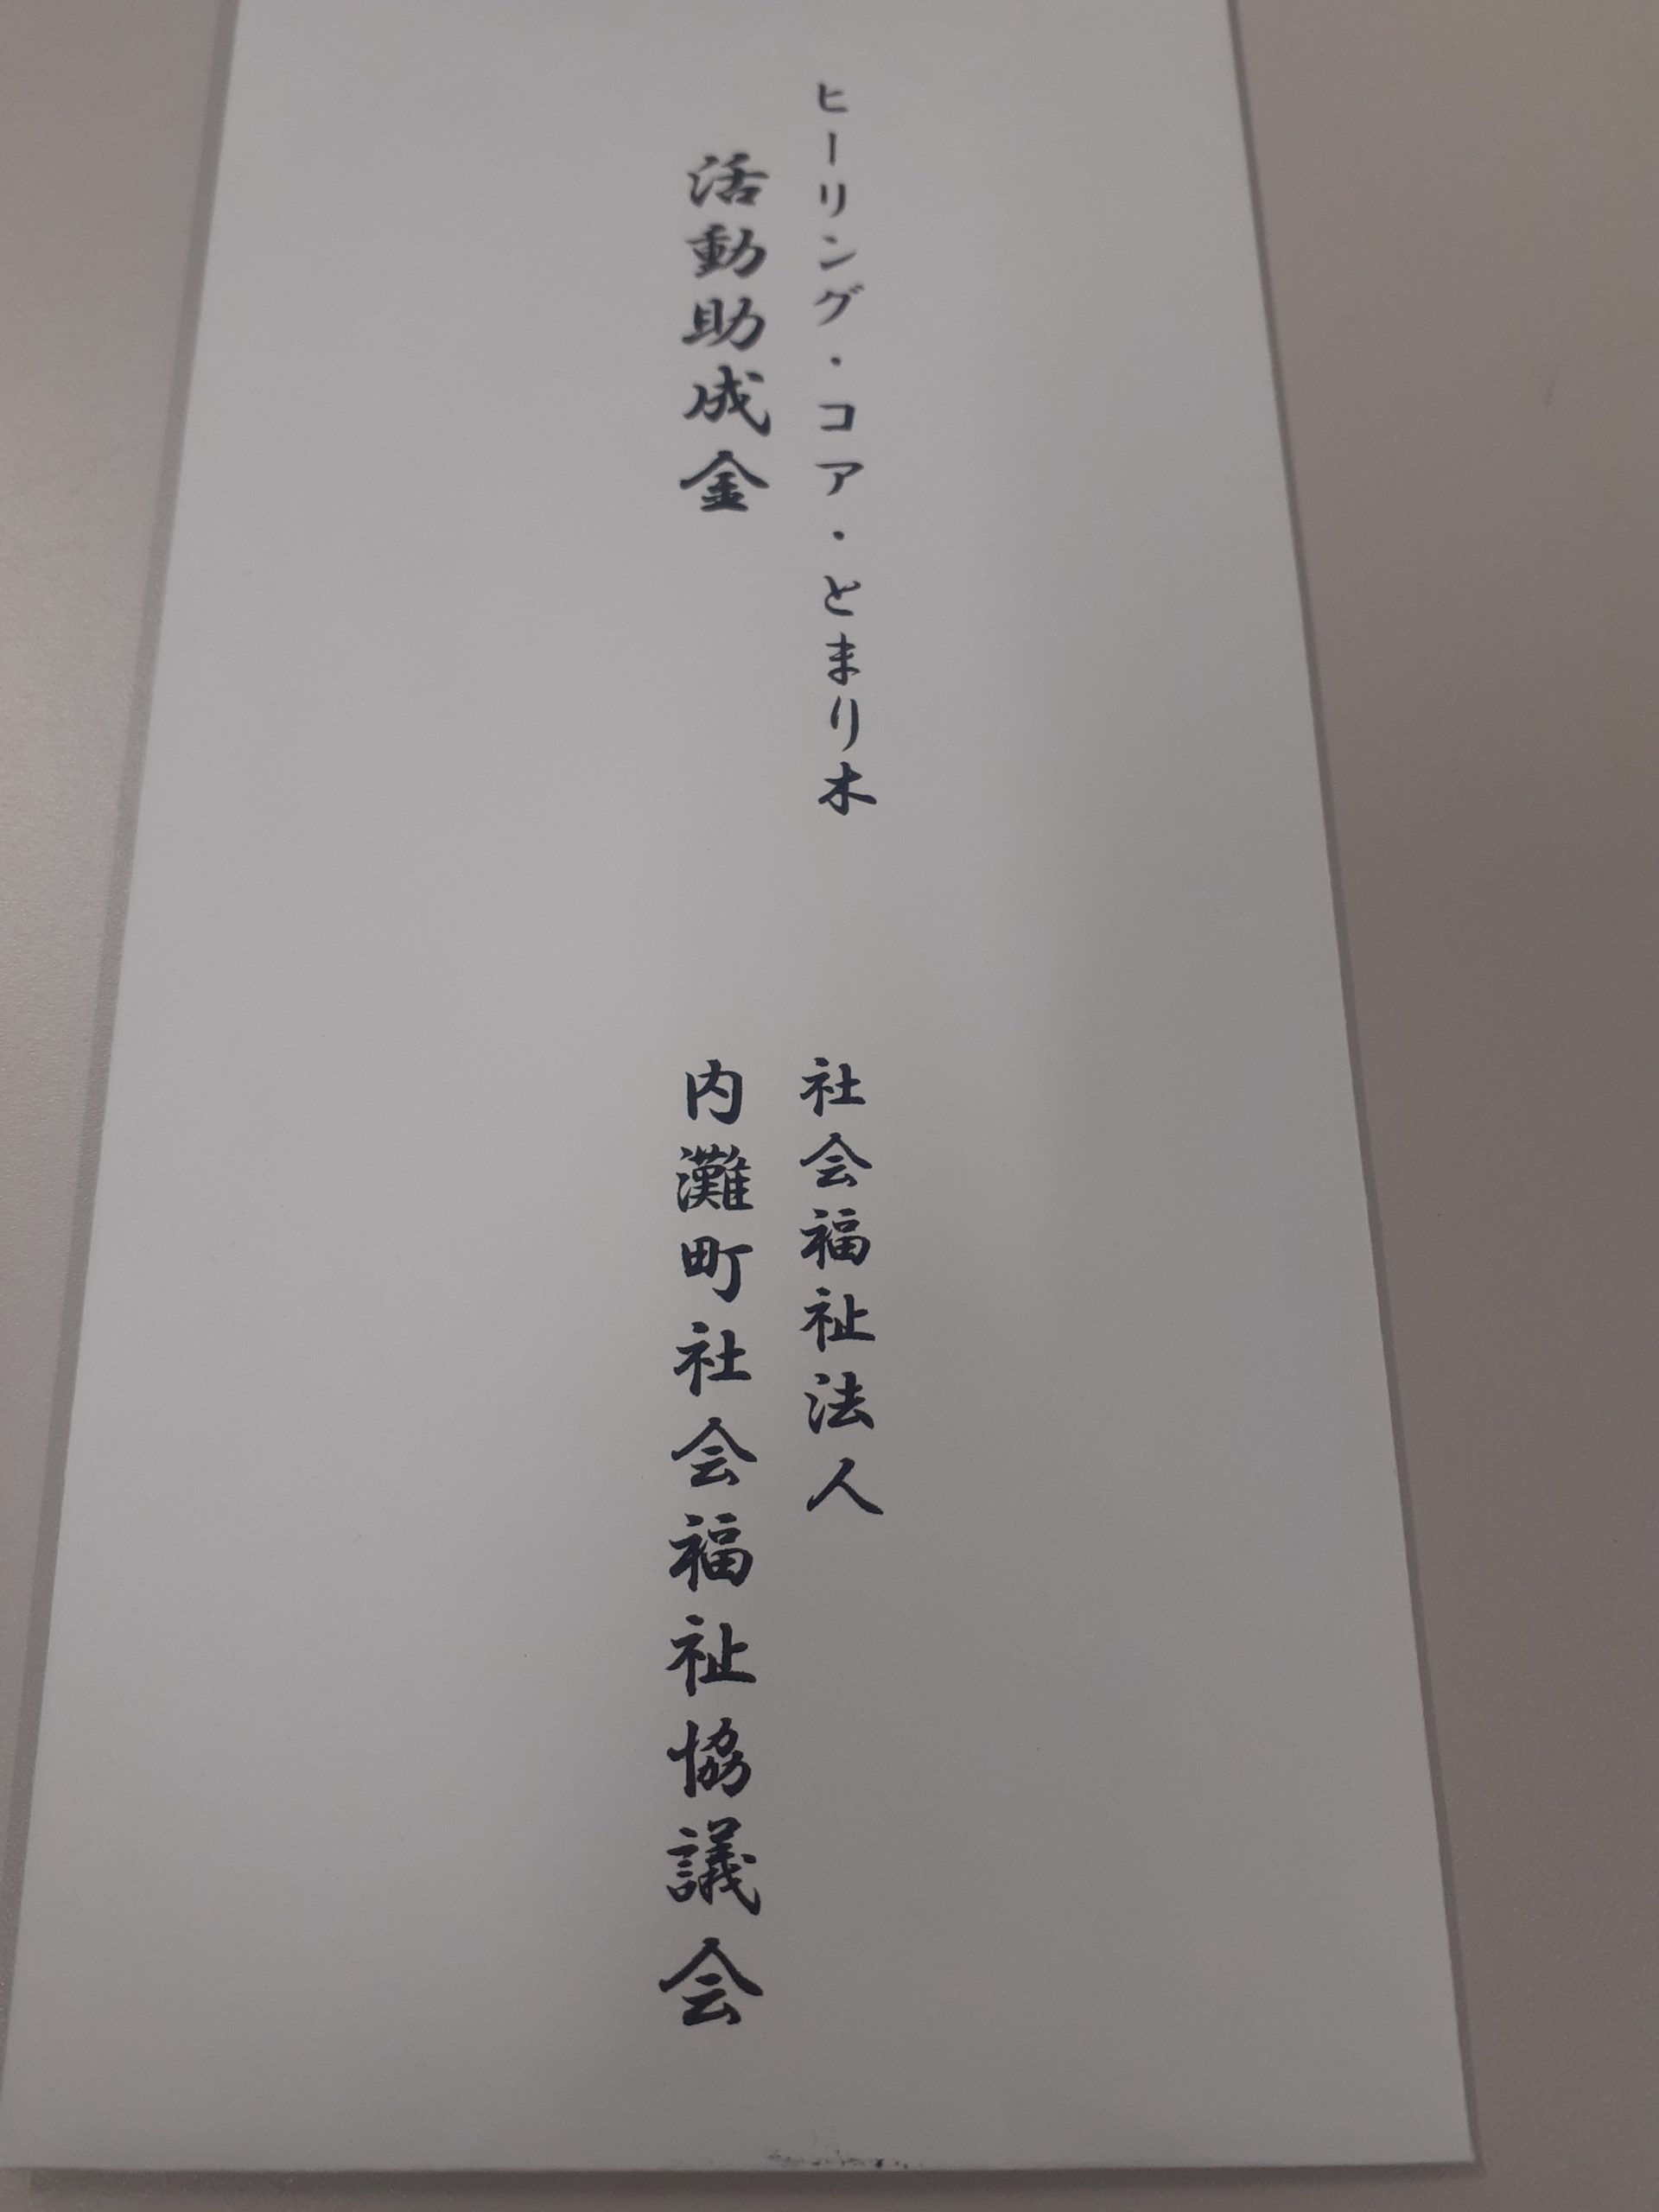 ヒーリング・コア・とまり木
活動助成金
社会福祉法人
内灘町社会福祉協議会